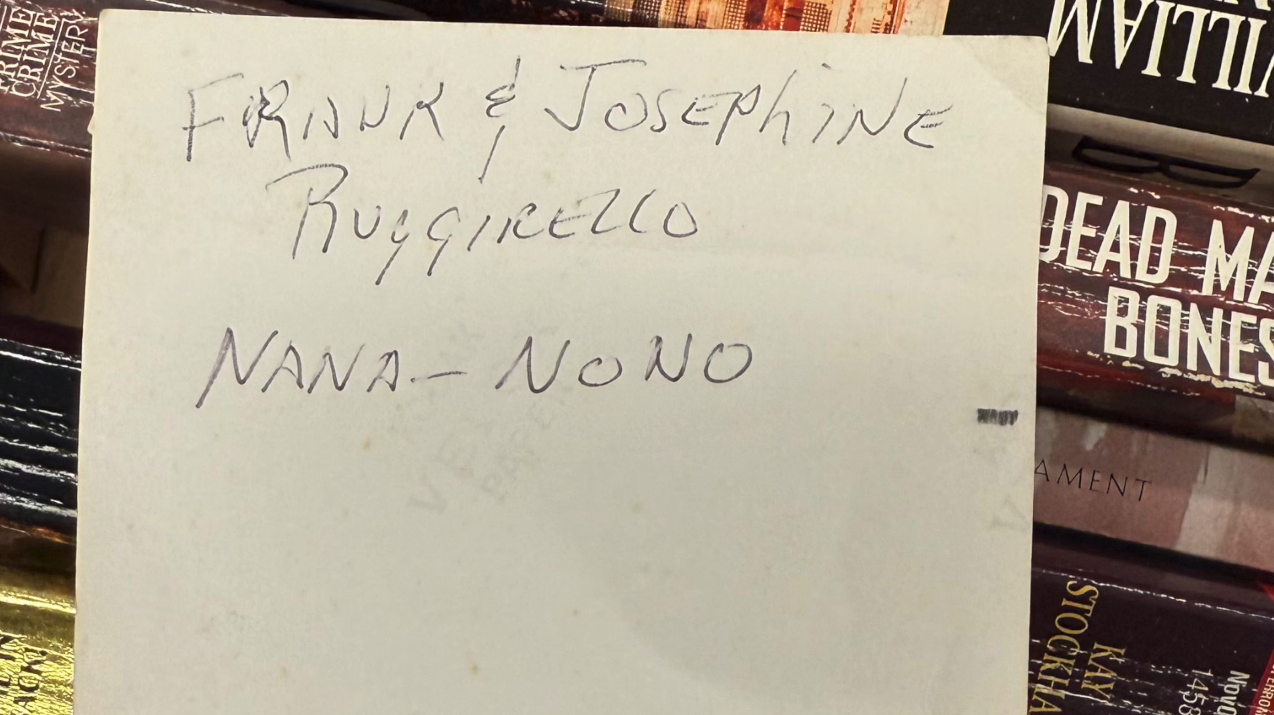 FRANK & JOSEPHINE
RUGGIRELLO
NANA - NONO
CRIME
MYSTERY
WILLIAM
DEAD MA
BONES
AMENT
KAY
STOCKHA